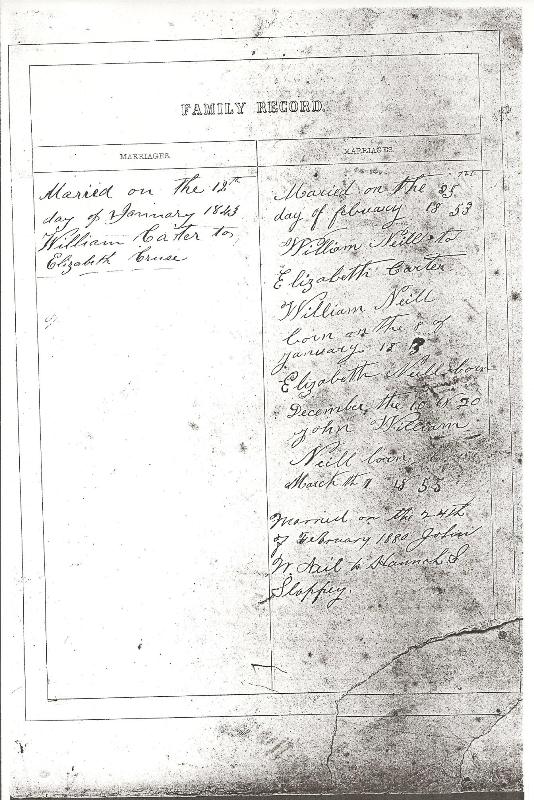 FAMILY RECORD.
MARRIAGES
Married on the 12th
day of January 1843
William Carter to
Elizabeth Cruse
MARRIAGES
Maried on the 25
day of february 1853
William Neill to
Elizabeth Carter
William Neill
born on the 8 of
january 18 3
Elizabeth Neill born
December the 10 18 30
John William
Neill born
March th 7 1855
Married on the 24th
of February 1880 John
W. Neil to Hannah S
Slappey.